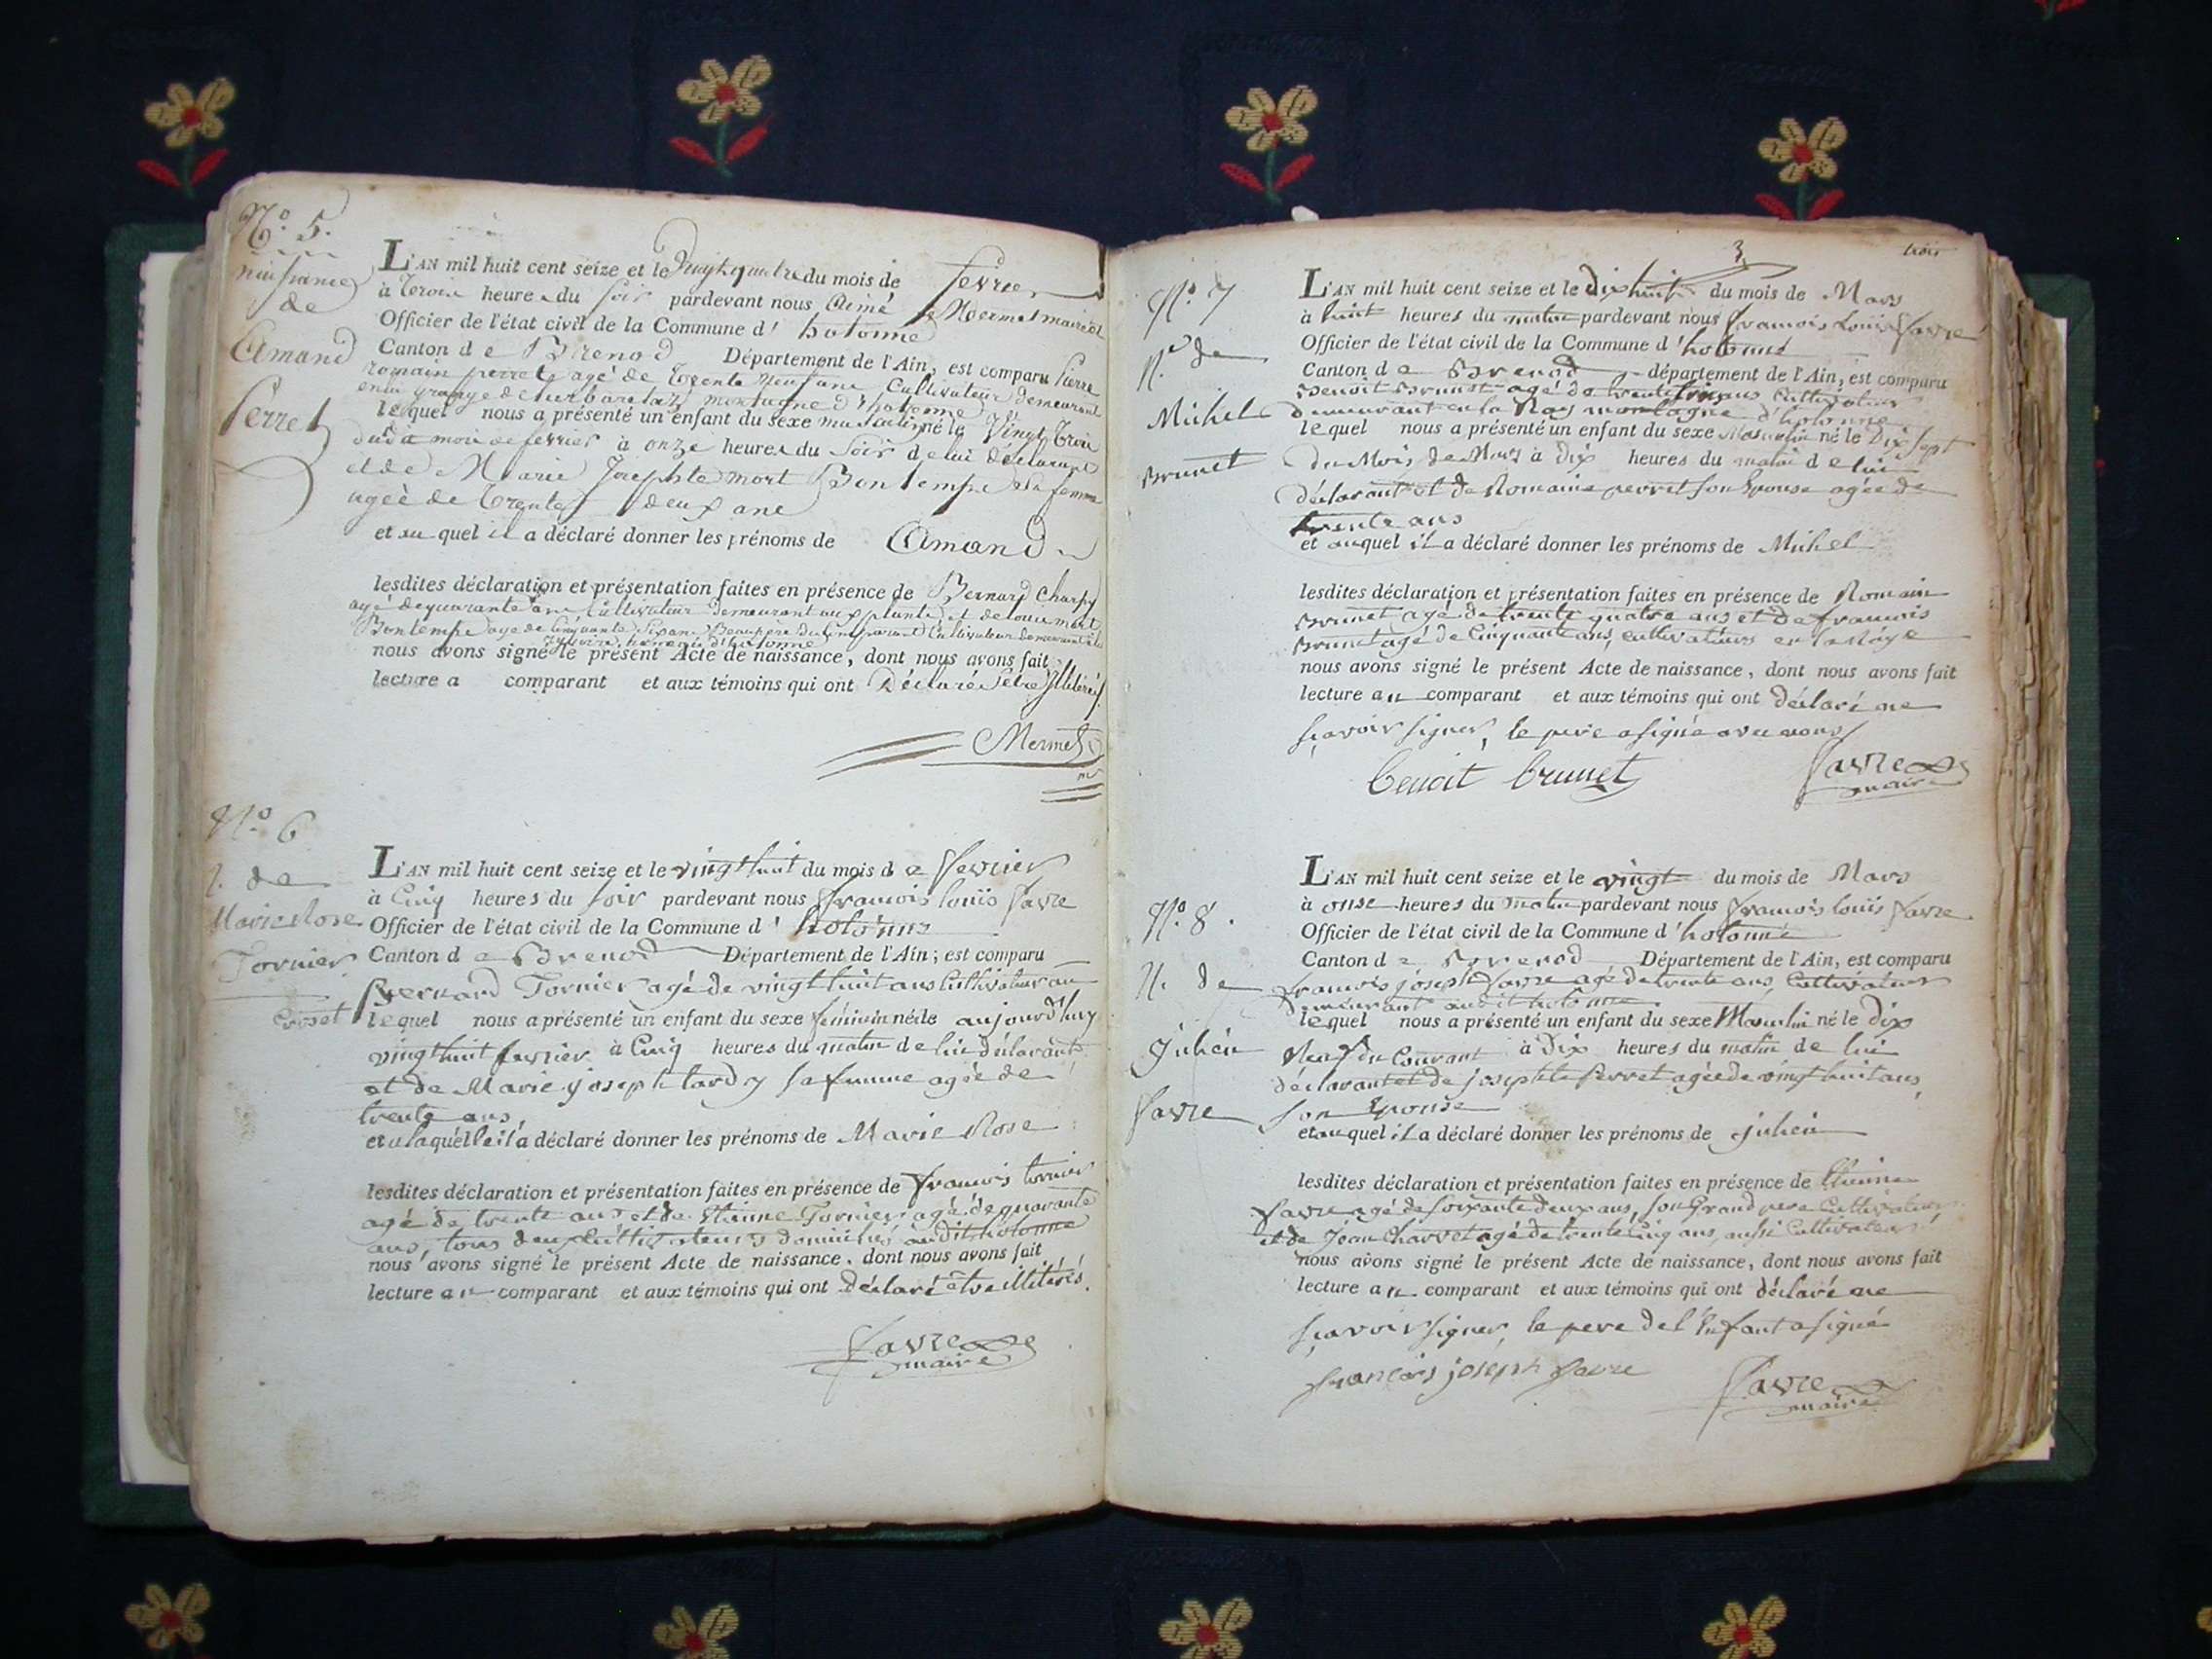 N.° 5.
naissance
de
Amand
Perret
L'AN mil huit cent seize et le vingt quatre du mois de fevrier
à trois heures du soir pardevant nous Aimé Mermet maire et
Officier de l'état civil de la Commune d' hotonne
Canton de Brenod Département de l'Ain, est comparu Pierre
romain perret agé de trente neuf ans Cultivateur demeurant
en la grange de montagne d'hotonne
lequel nous a présenté un enfant du sexe masculin né le Vingt trois
dudit mois de fevrier à onze heures du soir de lui déclarant
et de Marie Josephte mort Bontemps sa femme
agée de trente deux ans
et auquel il a déclaré donner les prénoms de Amand
lesdites déclaration et présentation faites en présence de Bernard Charpy
agé de quarante ans Cultivateur demeurant aux plans et de
Bontemps agé de Cinquante six ans Beaupère du Comparant Cultivateur demeurant
d'hotonne
nous avons signé le présent Acte de naissance, dont nous avons fait
lecture a comparant et aux témoins qui ont Déclaré être Illitérés
Mermet
N.° 6
de
Marie Rose
Tornier
Croset
L'AN mil huit cent seize et le vingt huit du mois de fevrier
à Cinq heures du soir pardevant nous francois louïs favre
Officier de l'état civil de la Commune d' hotonne
Canton de Brenod Département de l'Ain; est comparu
Bernard Tornier agé de vingt huit ans Cultivateur au
lequel nous a présenté un enfant du sexe féminin née le aujourd'huy
vingt huit fevrier à Cinq heures du matin de lui déclarant
et de Marie joseph tardy sa femme agée de
trente ans,
et a laquelle il a déclaré donner les prénoms de Marie Rose
lesdites déclaration et présentation faites en présence de francois tornier
agé de trente ans et de Etienne Tornier agé de quarante
ans, tous deux Cultivateurs domiciliés audit hotonne
nous avons signé le présent Acte de naissance, dont nous avons fait
lecture au comparant et aux témoins qui ont déclaré être illitérés.
favre
maire
3
trois
N.° 7
N.ce de
Michel
Brunet
L'AN mil huit cent seize et le dix huit du mois de Mars
à huit heures du matin pardevant nous francois Louis favre
Officier de l'état civil de la Commune d'hotonne
Canton de Brenod département de l'Ain, est comparu
Benoit Brunet agé de trente ans Cultivateur
demeurant en la Nay montagne d'hotonne
lequel nous a présenté un enfant du sexe Masculin né le Dix sept
du Mois de Mars à dix heures du matin de lui
déclarant et de Romaine perret son Epouse agée de
trente ans
et auquel il a déclaré donner les prénoms de Michel
lesdites déclaration et présentation faites en présence de Romain
Brunet agé de trente quatre ans et de francois
Brunet agé de Cinquante ans, cultivateurs en la Naye
nous avons signé le présent Acte de naissance, dont nous avons fait
lecture au comparant et aux témoins qui ont déclaré ne
sçavoir signer, le pere a signé avec nous
benoit brunet
favre
maire
N.° 8.
N. de
Julien
favre
L'AN mil huit cent seize et le vingt du mois de Mars
à onse heures du matin pardevant nous francois louïs favre
Officier de l'état civil de la Commune d'hotonne
Canton de Brenod Département de l'Ain, est comparu
francois joseph favre agé de trente ans Cultivateur
demeurant audit hotonne
lequel nous a présenté un enfant du sexe Masculin né le dix
Neuf du Courant à Dix heures du matin de lui
déclarant et de josephte Perret agée de vingt huit ans,
son Epouse
et auquel il a déclaré donner les prénoms de julien
lesdites déclaration et présentation faites en présence de Etienne
favre agé de soixante deux ans, son Grand pere Cultivateur
et de Jean Charvet agé de trente Cinq ans, aussi Cultivateur
nous avons signé le présent Acte de naissance, dont nous avons fait
lecture au comparant et aux témoins qui ont déclaré ne
sçavoir signer, le pere de l'Enfant a signé
françois joseph favre
favre
maire